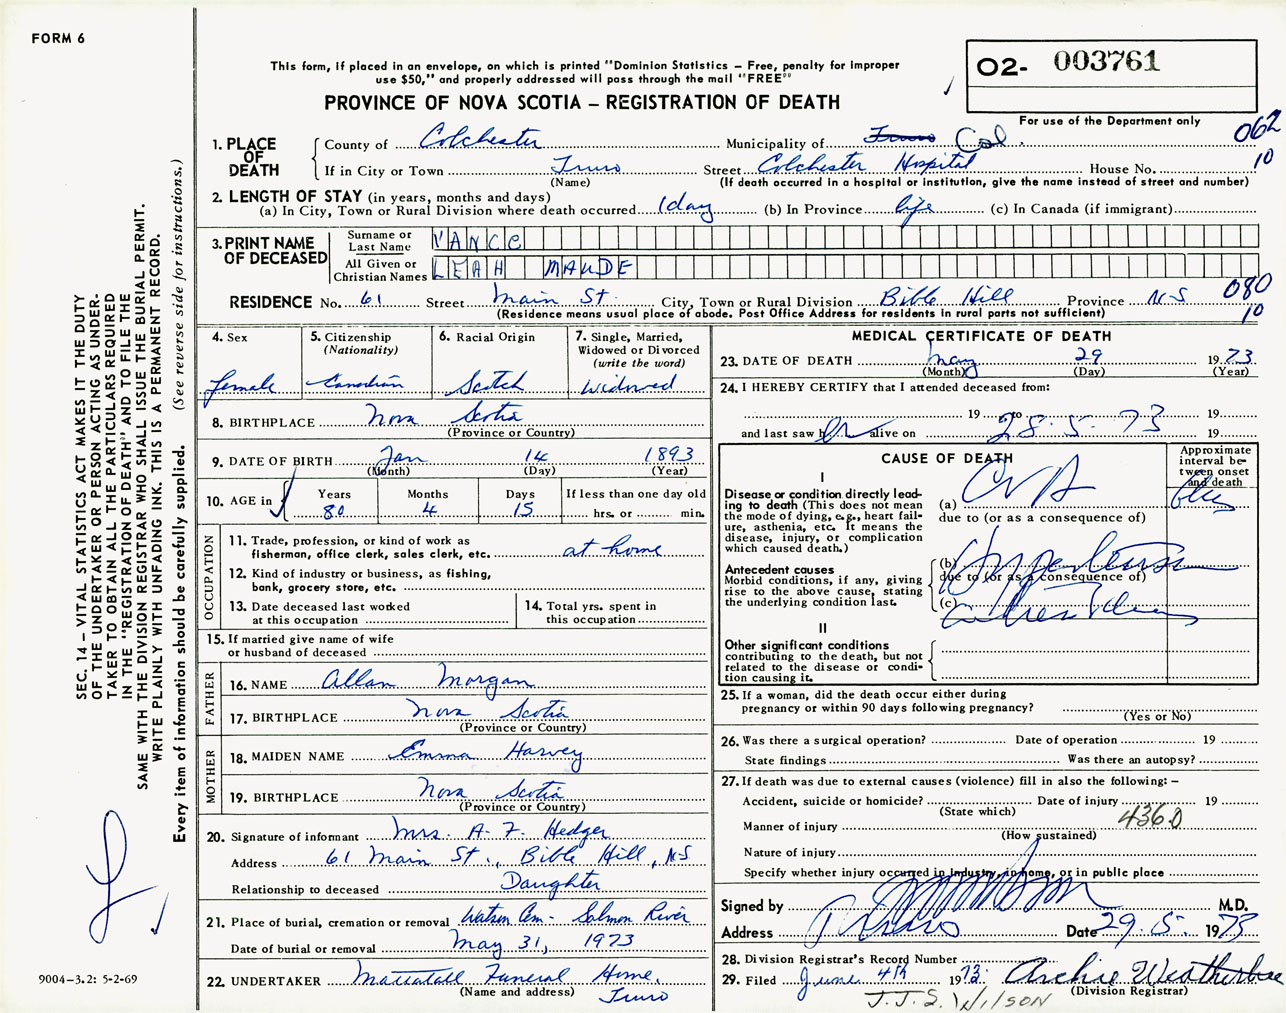 FORM 6
This form, if placed in an envelope, on which is printed "Dominion Statistics – Free, penalty for improper
use $50," and properly addressed will pass through the mail "FREE"
O2- 003761
PROVINCE OF NOVA SCOTIA – REGISTRATION OF DEATH
For use of the Department only
062
10
1. PLACE OF DEATH
County of Colchester Municipality of Truro Col.
If in City or Town Truro Street Colchester Hospital House No.
(Name) (If death occurred in a hospital or institution, give the name instead of street and number)
2. LENGTH OF STAY (in years, months and days)
(a) In City, Town or Rural Division where death occurred 1 day (b) In Province life (c) In Canada (if immigrant)
3. PRINT NAME OF DECEASED
Surname or Last Name VANCE
All Given or Christian Names LEAH MAUDE
RESIDENCE No. 61 Street Main St. City, Town or Rural Division Bible Hill Province N.S
(Residence means usual place of abode. Post Office Address for residents in rural parts not sufficient)
080
10
4. Sex
female
5. Citizenship
(Nationality)
Canadian
6. Racial Origin
Scotch
7. Single, Married,
Widowed or Divorced
(write the word)
Widowed
8. BIRTHPLACE Nova Scotia
(Province or Country)
9. DATE OF BIRTH Jan 14 1893
(Month) (Day) (Year)
10. AGE in Years 80 Months 4 Days 15 If less than one day old
hrs. or min.
OCCUPATION
11. Trade, profession, or kind of work as
fisherman, office clerk, sales clerk, etc. at home
12. Kind of industry or business, as fishing,
bank, grocery store, etc.
13. Date deceased last worked
at this occupation
14. Total yrs. spent in
this occupation
15. If married give name of wife
or husband of deceased
FATHER
16. NAME Allan Morgan
17. BIRTHPLACE Nova Scotia
(Province or Country)
MOTHER
18. MAIDEN NAME Emma Harvey
19. BIRTHPLACE Nova Scotia
(Province or Country)
20. Signature of informant Mrs. A. F. Hedger
Address 61 Main St., Bible Hill, N.S
Relationship to deceased Daughter
21. Place of burial, cremation or removal Watson Cem- Salmon River
Date of burial or removal May 31, 1973
22. UNDERTAKER Mattatall Funeral Home,
(Name and address) Truro
MEDICAL CERTIFICATE OF DEATH
23. DATE OF DEATH May 29 1973
(Month) (Day) (Year)
24. I HEREBY CERTIFY that I attended deceased from:
19 to 19
and last saw h er alive on 28.5.73 19
CAUSE OF DEATH
Approximate
interval be-
tween onset
and death
I
Disease or condition directly lead-
ing to death (This does not mean
the mode of dying, e.g., heart fail-
ure, asthenia, etc. It means the
disease, injury, or complication
which caused death.)
(a) CVA
due to (or as a consequence of)
Antecedent causes
Morbid conditions, if any, giving
rise to the above cause, stating
the underlying condition last.
(b) Hypertension
due to (or as a consequence of)
(c)
II
Other significant conditions
contributing to the death, but not
related to the disease or condi-
tion causing it.
25. If a woman, did the death occur either during
pregnancy or within 90 days following pregnancy?
(Yes or No)
26. Was there a surgical operation? Date of operation 19
State findings Was there an autopsy?
27. If death was due to external causes (violence) fill in also the following: –
Accident, suicide or homicide? Date of injury 19
(State which)
Manner of injury 4360
(How sustained)
Nature of injury
Specify whether injury occurred in industry, in home, or in public place
Signed by M.D.
Address Truro Date 29.5. 1973
28. Division Registrar's Record Number
29. Filed June 4th 1973 Archie Weatherbee
(Division Registrar)
J.J.S. WILSON
SEC. 14 – VITAL STATISTICS ACT MAKES IT THE DUTY
OF THE UNDERTAKER OR PERSON ACTING AS UNDER-
TAKER TO OBTAIN ALL THE PARTICULARS REQUIRED
IN THE "REGISTRATION OF DEATH" AND TO FILE THE
SAME WITH THE DIVISION REGISTRAR WHO SHALL ISSUE THE BURIAL PERMIT.
WRITE PLAINLY WITH UNFADING INK. THIS IS A PERMANENT RECORD.
Every item of information should be carefully supplied. (See reverse side for instructions.)
9004–3.2: 5-2-69